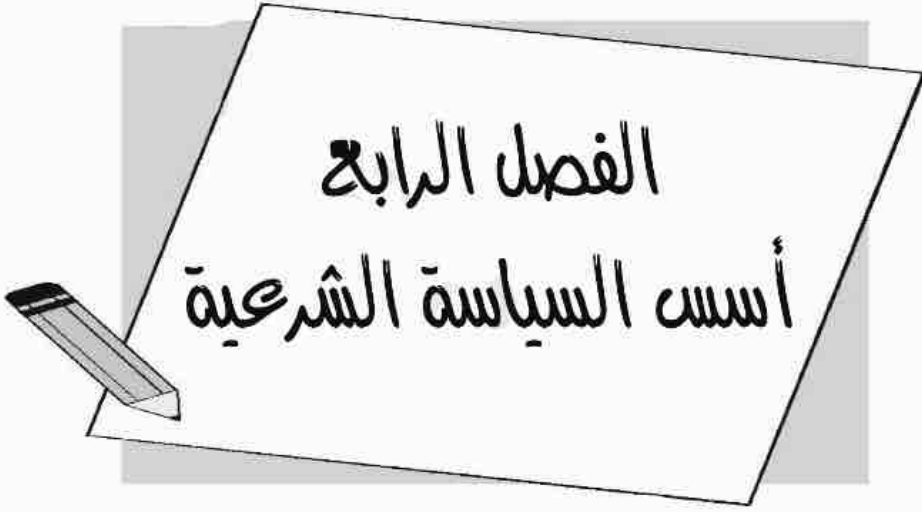 الفصل الرابع
أسس السياسة الشرعية